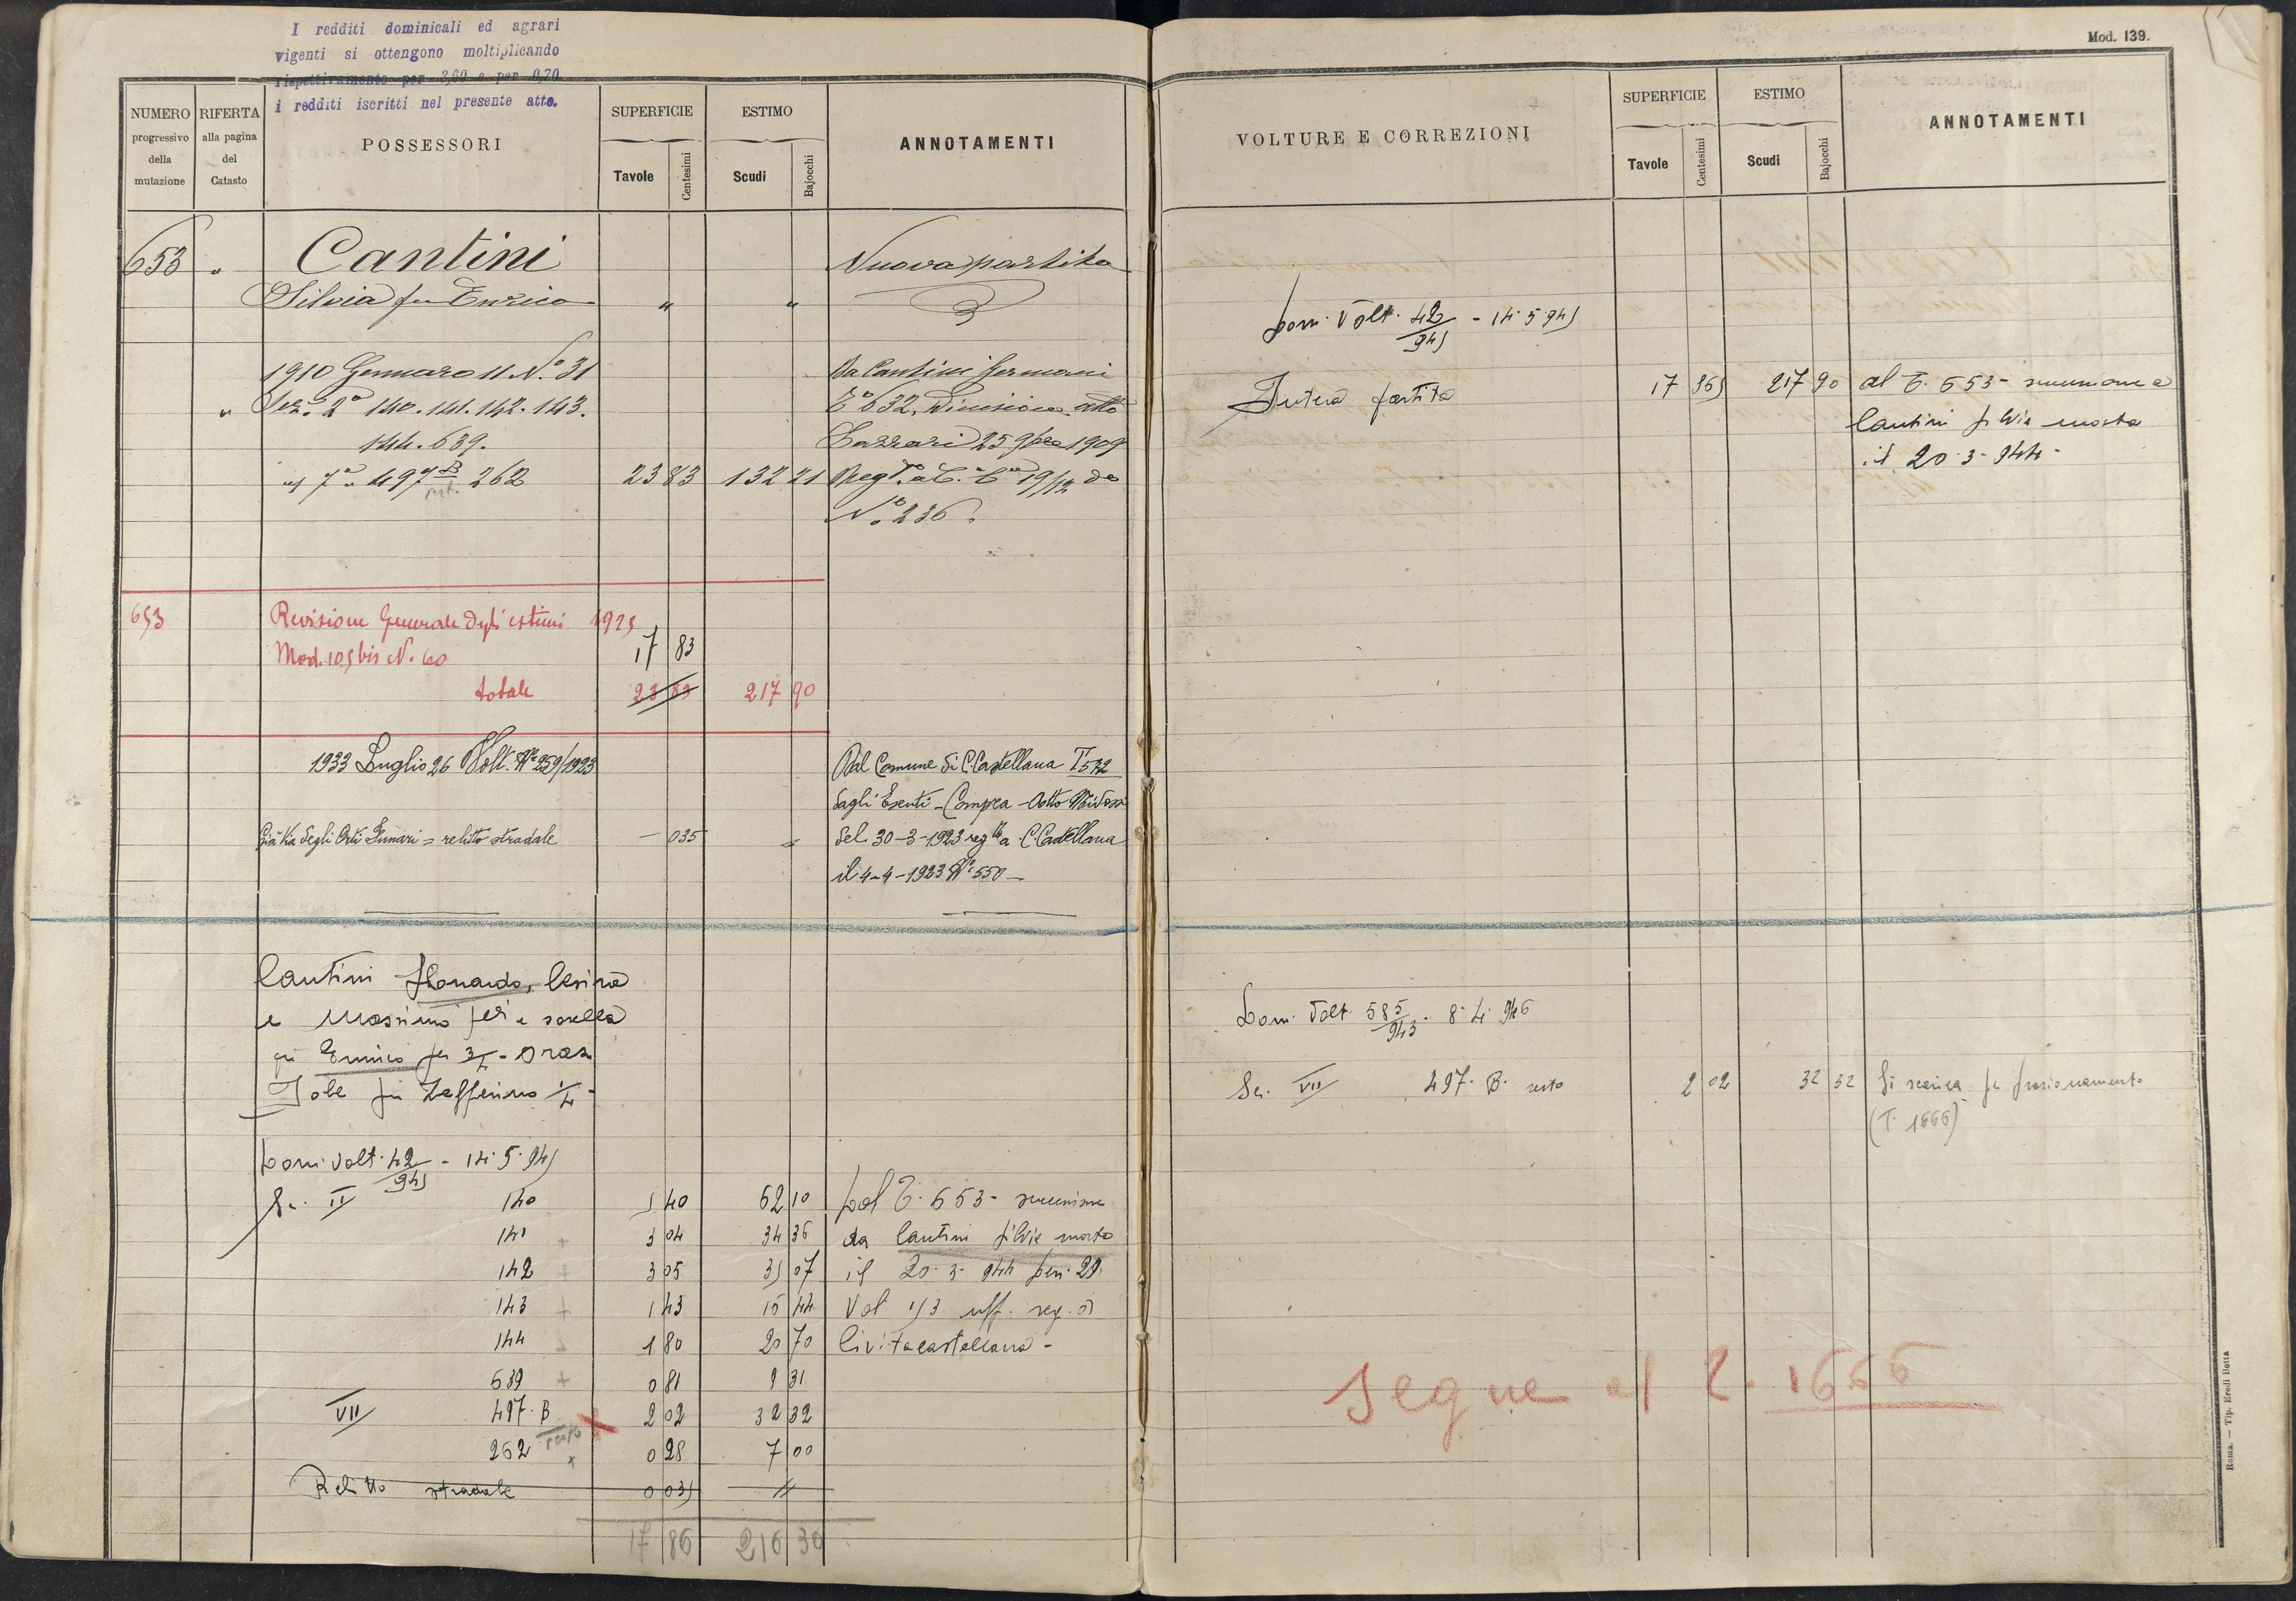 I redditi dominicali ed agrari
vigenti si ottengono moltiplicando
rispettivamente per 3,60 e per 0,70
i redditi iscritti nel presente atto.
NUMERO progressivo della mutazione
RIFERTA alla pagina del Catasto
POSSESSORI
SUPERFICIE
Tavole Centesimi
ESTIMO
Scudi Bajocchi
ANNOTAMENTI
653 " Cantini Nuova partita
Silvia fu Enrico " "
1910 Gennaro 11 N.° 31 Da Cantini Germani
" Sez.e 2a 140. 141. 142. 143. T° 632, Divisione atto
144. 639. Lazzari 25 9bre 1909
" 7a 497 B rest. 262 23 83 132 21 Reg.to a C. C.na 19/12 do
N.° 236.
653 Revisione Generale degli estimi 1925
Mod. 105 bis N. 60 17 83
totale 23 83 217 90
1933 Luglio 26 Volt. N° 259/1923 Dal Comune di C. Castellana T. 572
dagli Esenti - Compra - Atto
Già Via degli Orti = relitto stradale — 035 = del 30-3-1923 reg.to a C. Castellana
il 4-4-1923 N° 550 —
Cantini Cesira
e Massimo e sorella
fu Enrico per 3/4 - Orazi
Iole fu Zefferino 1/4 -
Dom. Volt. 42/945 - 14.5.945
Se. II 140 5 40 62 10 Dal T. 653 - successione
141 + 3 04 34 36 da Cantini Silvia morta
142 + 3 05 35 07 il 20.3.944 den. 29
143 + 1 43 16 44 Vol 153 uff. reg. di
144 1 80 20 70 Civitacastellana -
639 + 0 81 9 31
VII 497. B resto x 2 02 32 32
262 x 0 28 7 00
Relitto stradale 0 035 //
17 86 216 30
Mod. 139.
VOLTURE E CORREZIONI
SUPERFICIE
Tavole Centesimi
ESTIMO
Scudi Bajocchi
ANNOTAMENTI
Dom. Volt. 42/945 - 14.5.945
Intera partita 17 865 217 90 al T. 653 - successione a
Cantini Silvia morta
il 20.3.944 -
Dom. Volt. 585/943 - 8.4.946
Se. VII 497. B. resto 2 02 32 32 Si scarica per frazionamento
(T. 1666)
segue al 1666
Roma. — Tip. Eredi Botta